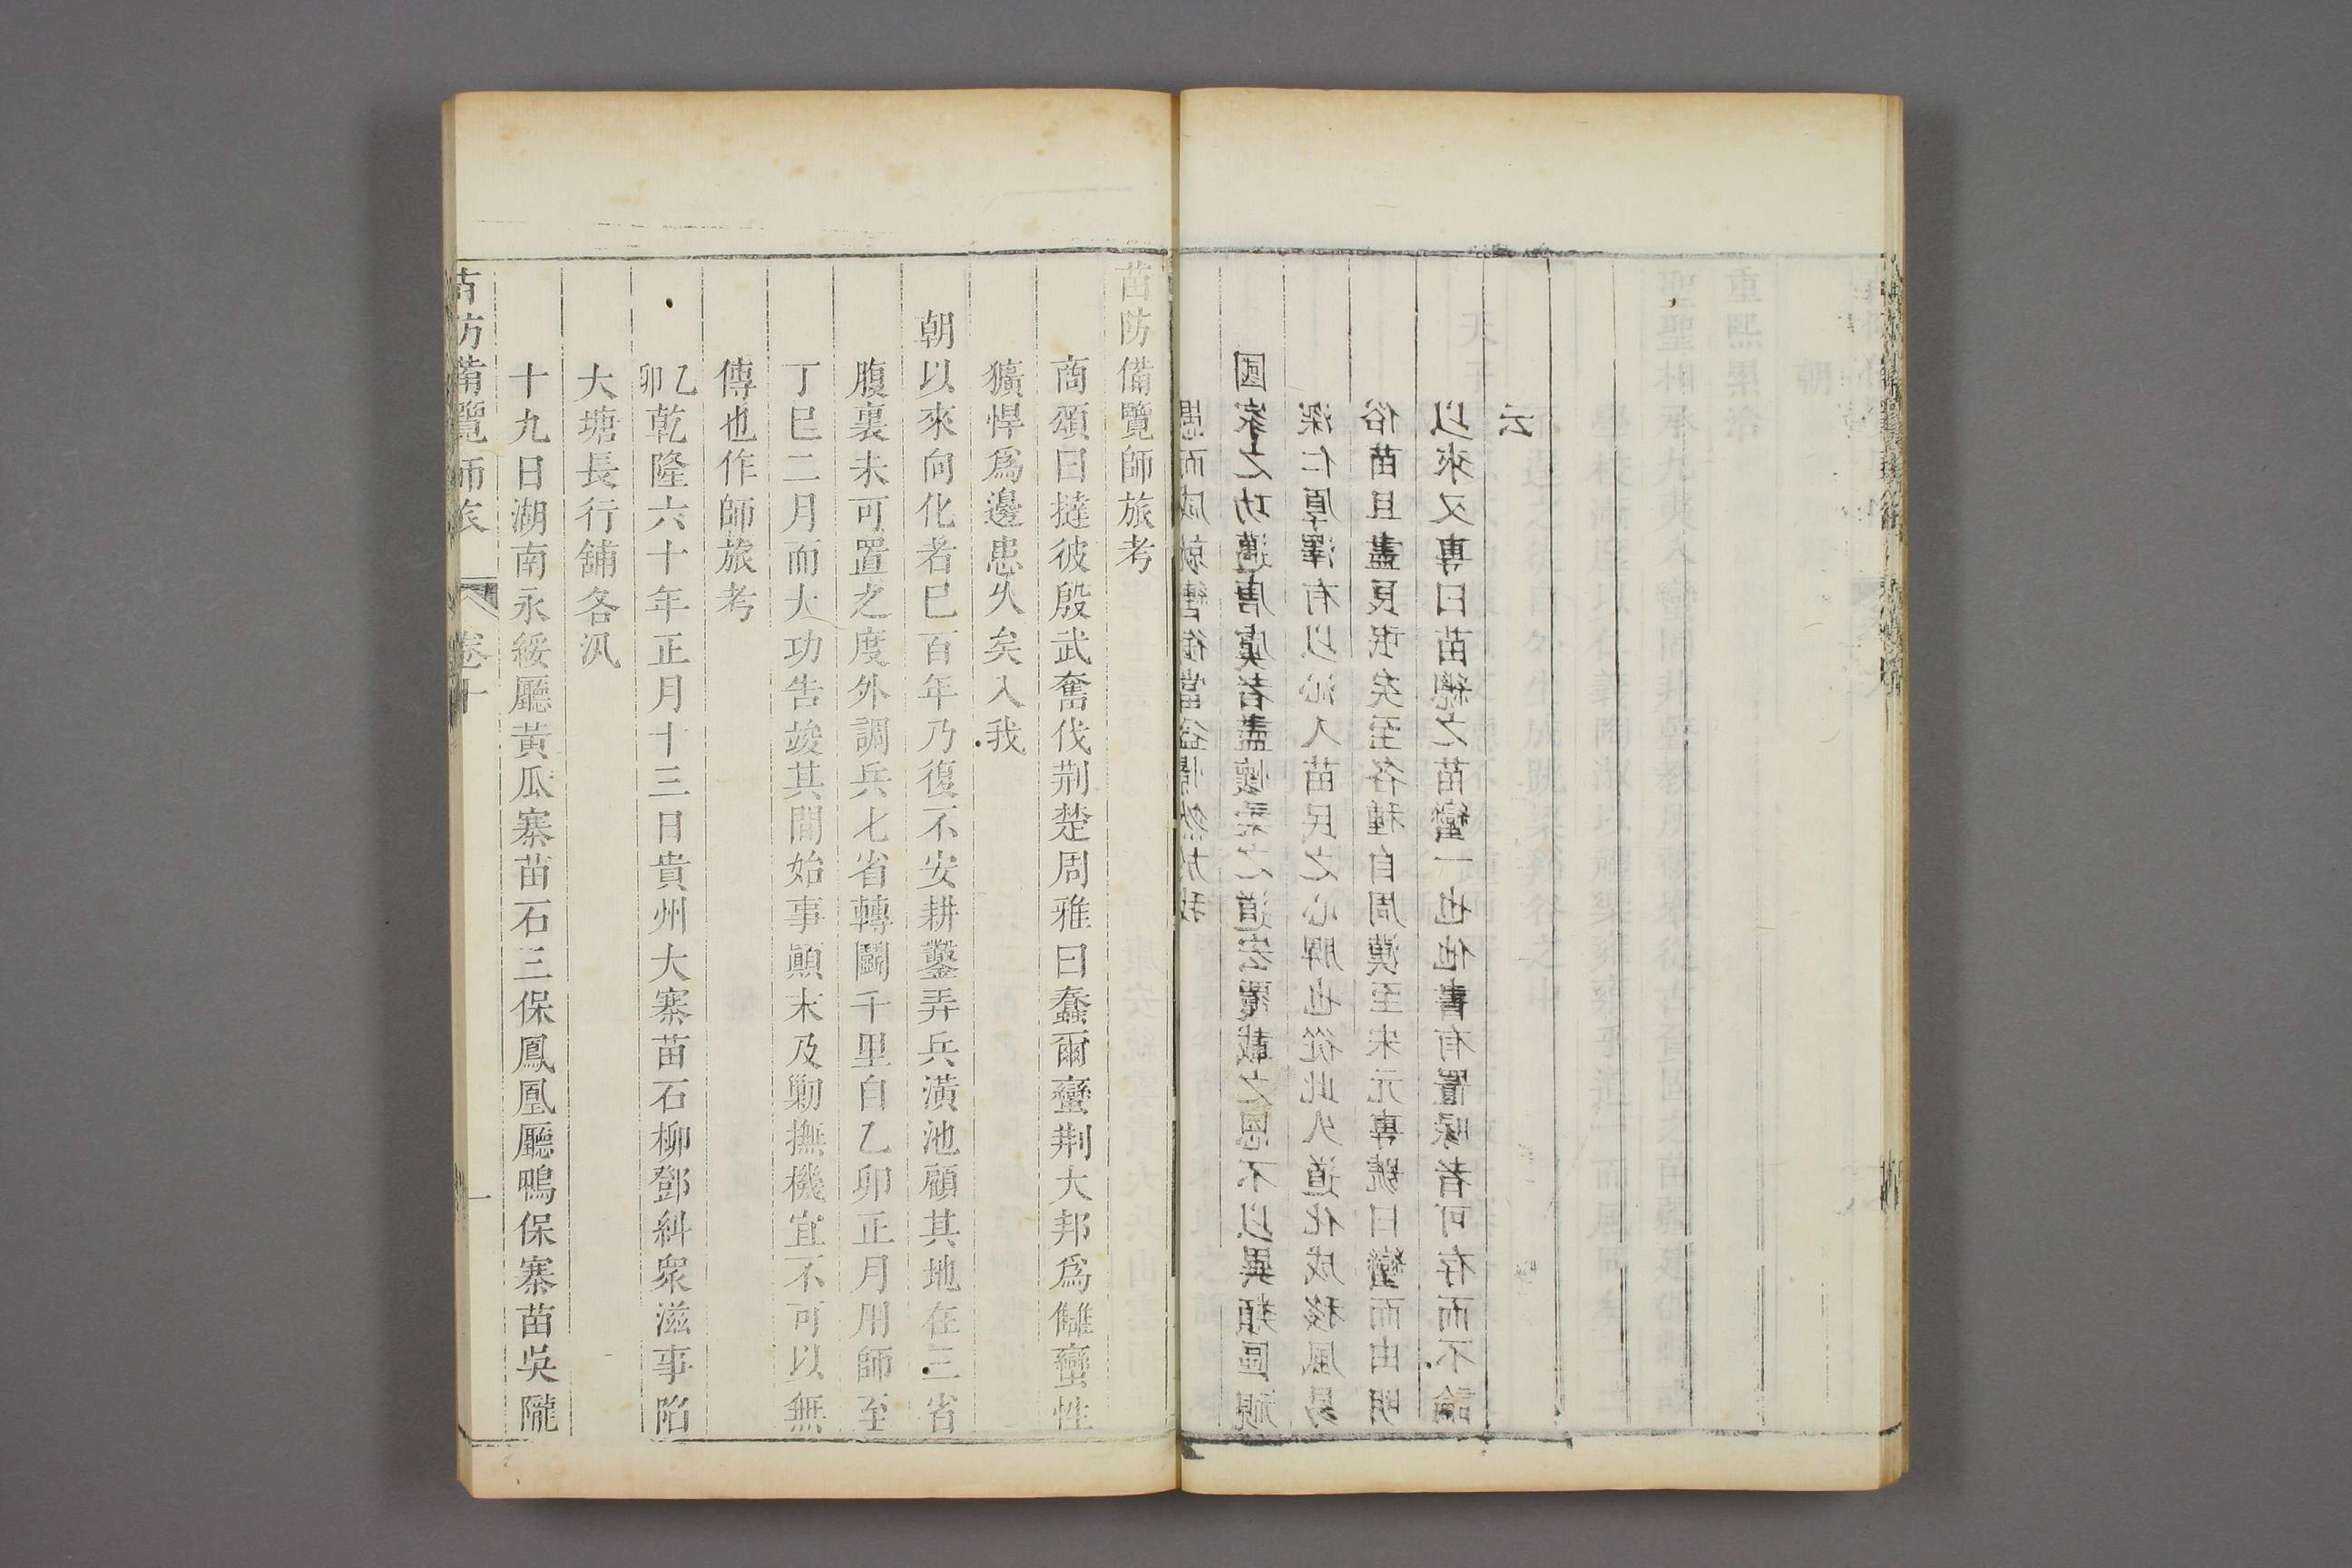 國家之功邁唐虞者盡懷柔之道宏覆載之恩不以異類區視
深仁厚澤有以沁入苗民之心脾也從此久道化成移風易
俗苗且盡良氓矣至各種自周漢至宋元專號曰蠻而由明
以來又專曰苗總之苗蠻一也他書有置喙者可存而不論
云
苗防備覽師旅考
商頌曰撻彼殷武奮伐荆楚周雅曰蠢爾蠻荆大邦爲讎蠻性
獷悍爲邊患久矣入我
朝以來向化者已百年乃復不安耕鑿弄兵潢池顧其地在三省
腹裏未可置之度外調兵七省轉鬭千里自乙卯正月用師至
丁巳二月而大功告竣其間始事顚末及勦撫機宜不可以無
傳也作師旅考
乙卯乾隆六十年正月十三日貴州大寨苗石柳鄧糾衆滋事陷
大塘長行舖各汛
十九日湖南永綏廳黃瓜寨苗石三保鳳凰廳鴨保寨苗吳隴
苗防備覽 師旅 卷十 一